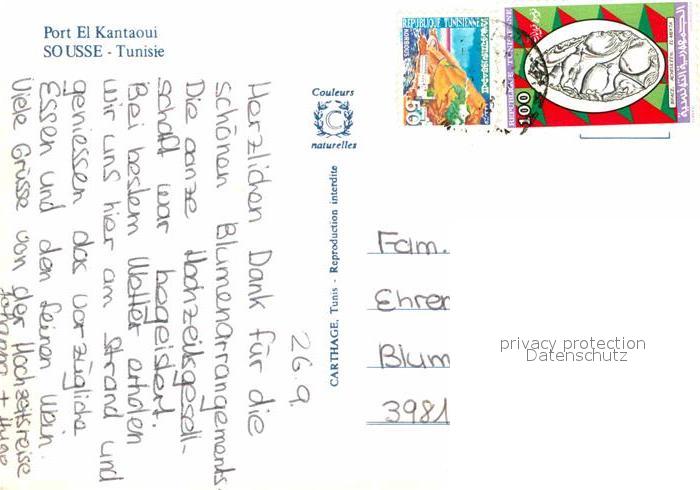 Port El Kantaoui
SOUSSE - Tunisie
26.9.
Herzlichen Dank für die
schönen Blumenarrangements.
Die ganze Hochzeitsgesell-
schaft war begeistert.
Bei bestem Wetter erholen
wir uns hier am Strand und
geniessen das vorzügliche
Essen und den feinen Wein.
Viele Grüsse von der Hochzeitsreise
Johanna +
Couleurs
C
naturelles
CARTHAGE, Tunis - Reproduction interdite
REPUBLIQUE TUNISIENNE
KORBOUS
50
REPUBLIQUE TUNISIENNE
100
Fam.
Ehrer
Blum
3981
privacy protection
Datenschutz